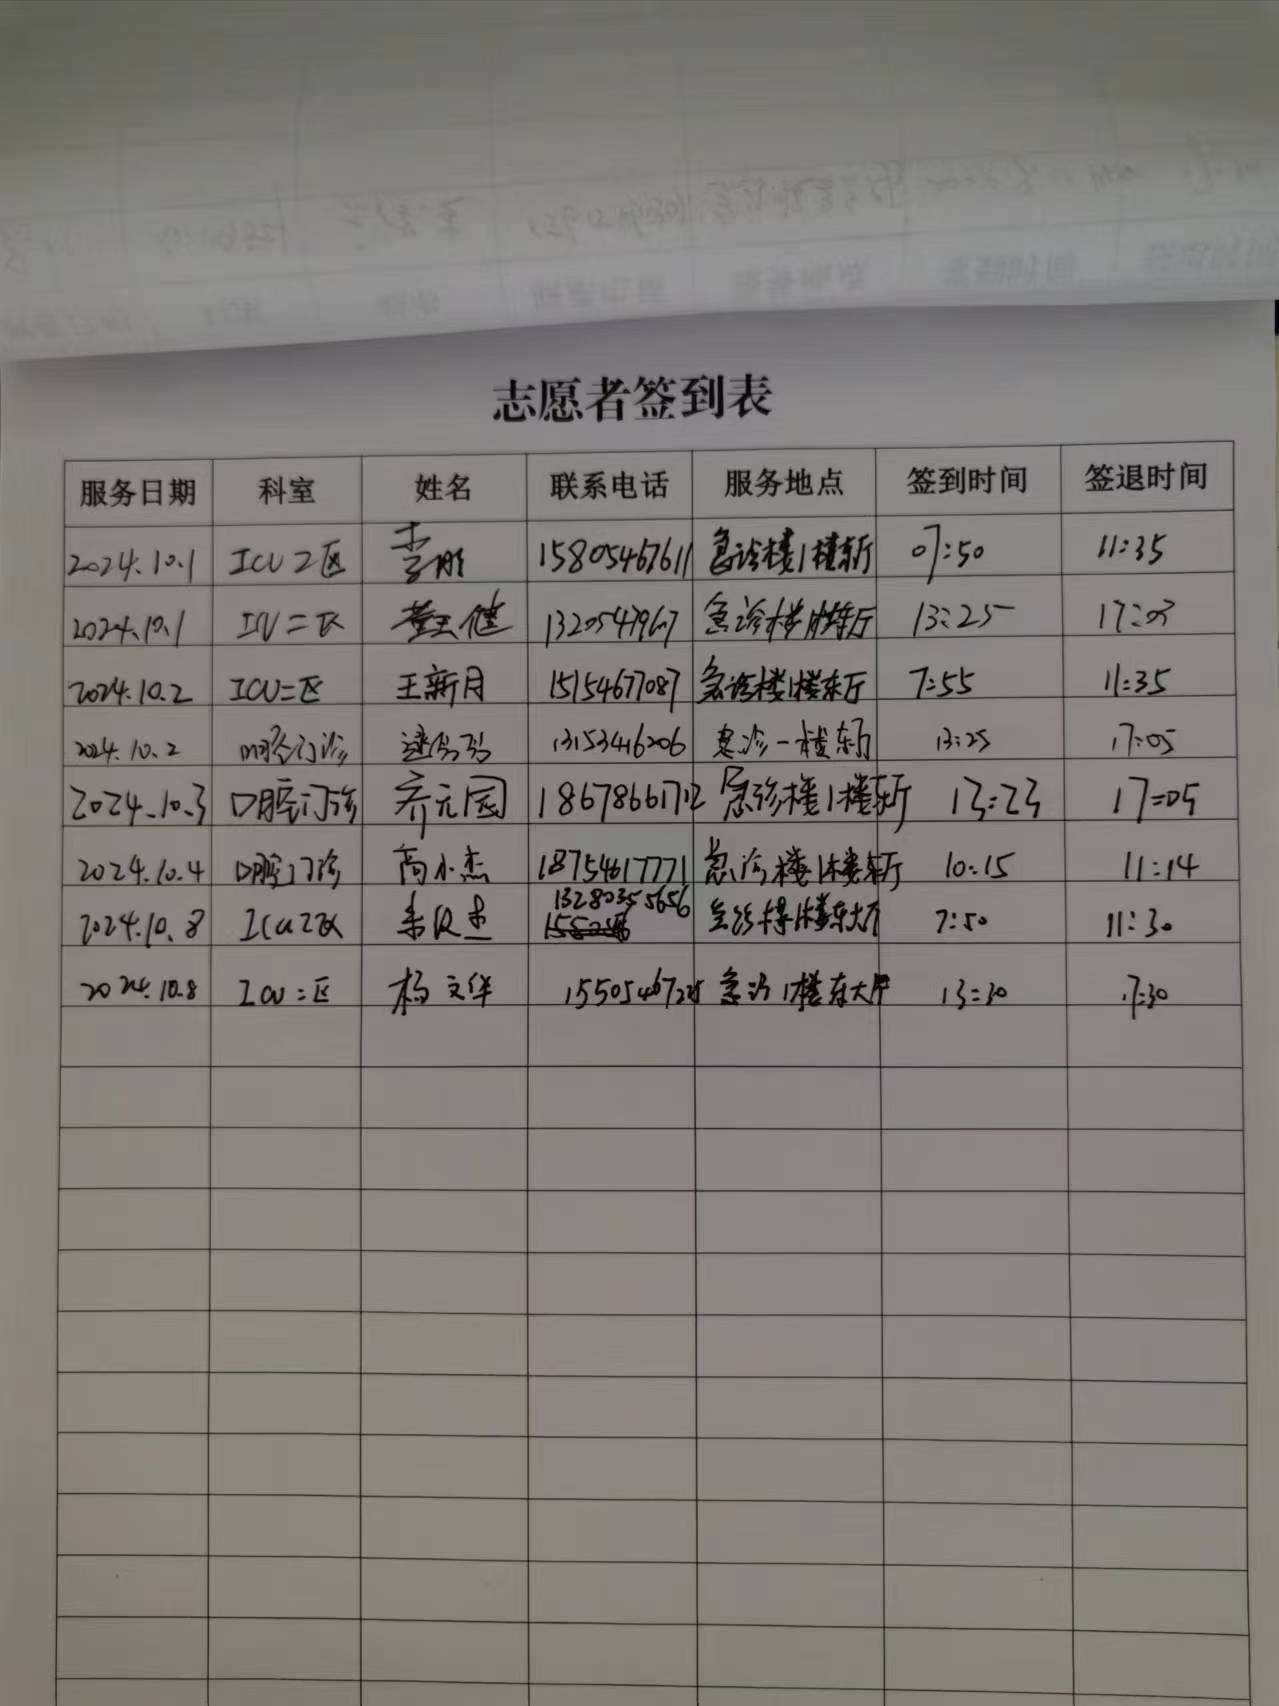 志愿者签到表
服务日期 科室 姓名 联系电话 服务地点 签到时间 签退时间
2024.10.1 ICU二区 李刚 15805467611 急诊楼1楼东厅 07:50 11:35
2024.10.1 ICU二区 健 急诊楼1楼东厅 13:25 17:03
2024.10.2 ICU二区 王新月 15154677087 急诊楼1楼东厅 7:55 11:35
2024.10.2 口腔门诊 13153416206 急诊一楼东厅 13:25 17:05
2024.10.3 口腔门诊 齐元园 18678661712 急诊楼1楼东厅 13:23 17:05
2024.10.4 口腔门诊 高小杰 18754617771 急诊楼1楼东厅 10:15 11:14
2024.10.8 ICU2区 13280355656 急诊楼1楼东大厅 7:50 11:30
2024.10.8 ICU二区 杨文华 急诊1楼东大厅 13:30 17:30